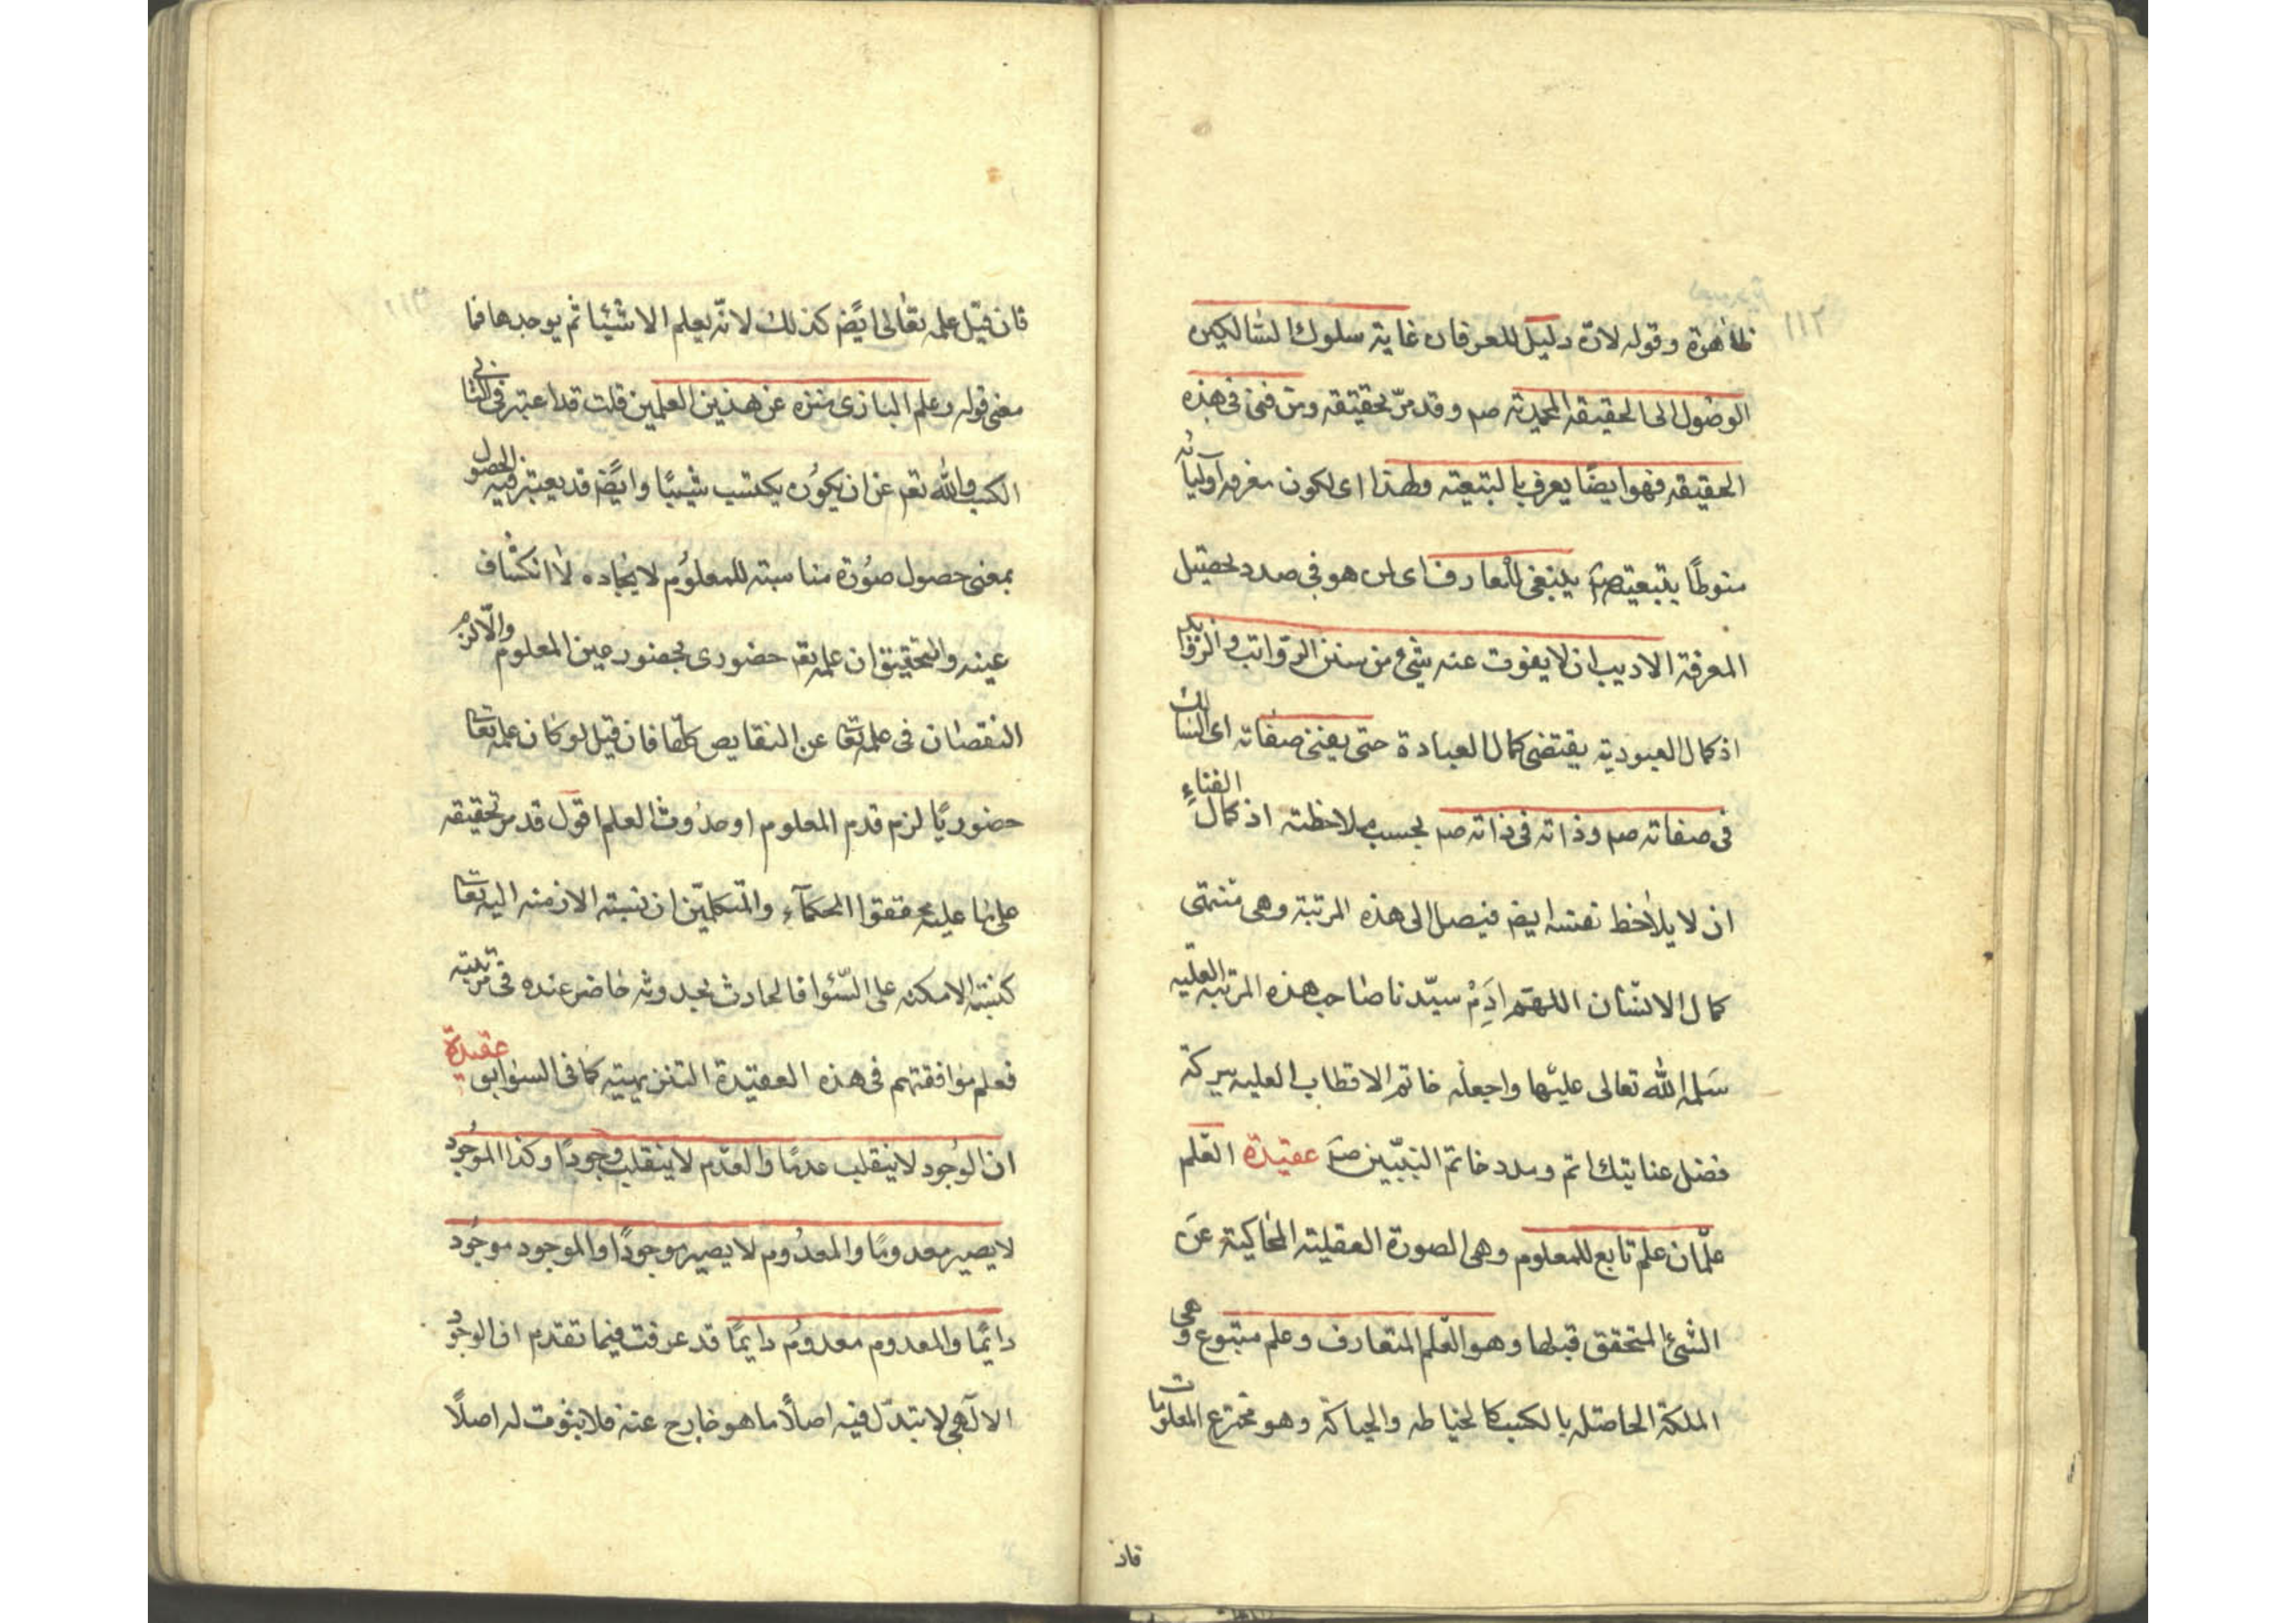 ١١٢
ظاهرة وقوله لانه دليل للعرفان غاية سلوك السالكين
الوصول الى الحقيقة المحمدية صم وقد مرّ تحقيقه ومن فنى فى هذه
الحقيقة فهو ايضًا يعرف بالتبعية ولهذا اى لكون معرفة اوليائه
منوطًا بتبعيته صم ينبغى للعارف اى لمن هو فى صدد تحصيل
المعرفة الاديب ان لا يفوت عنه شئ من سنن الرواتب والزوايد
اذ كمال العبودية يقتضى كمال العبادة حتى يفنى صفاته اى السالك
فى صفاته صم وذاته فى ذاته صم بحسب ملاحظته اذ كمال الفناء
ان لا يلاحظ نفسه ايضم فيصل الى هذه المرتبة وهى منتهى
كمال الانسان اللهم ادم سيدنا صاحب هذه المرتبة العلية
سلمه الله تعالى عليها واجعله خاتم الاقطاب العلية ببركة
فضل عنايتك اتم ومدد خاتم النبيين صم عقيدة العلم
علمان علم تابع للمعلوم وهى الصورة العقلية المحاكية عن
الشئ المتحقق قبلها وهو العلم المتعارف وعلم متبوع وهى
الملكة الحاصلة بالكسب كالخياطه والحياكة وهو مخترع المعلومات
فان
١١٣
فان قيل علمه تعالى ايضم كذلك لانه يعلم الاشياء ثم يوجدها فما
معنى قوله وعلم البارى منزه عن هذين العلمين قلت قد اعتبر فى الثانى
الكسب والله تعم عن ان يكون يكتسب شيئًا وايضم قد يعتبر فيه الحصول
بمعنى حصول صورة مناسبة للمعلوم لايجاده لا انكشاف
عينه والتحقيق ان علمه تعم حضورى بحضور عين المعلوم والّا لزم
النقصان فى علمه تعالى عن النقايص كلها فان قيل لو كان علمه تعالى
حضوريًا لزم قدم المعلوم او حدوث العلم اقول قد مر تحقيقه
على ما عليه محققوا الحكمآء والمتكلمين ان نسبة الازمنه اليه تعالى
كنسبة الامكنه على السوا فالحادث بحدوثه حاضر عنده فى مرتبته
فعلم موافقتهم فى هذه العقيدة التنزيهيته كما فى السوابق عقيدة
ان الوجود لا ينقلب عدمًا والعدم لا ينقلب وجودًا وكذا الموجود
لا يصير معدومًا والمعدوم لا يصير موجودًا والموجود موجود
دايمًا والمعدوم معدوم دايمًا قد عرفت فيما تقدم ان الوجود
الالهى لا تبدل فيه اصلًا ما هو خارج عنه فلا ثبوت له اصلًا